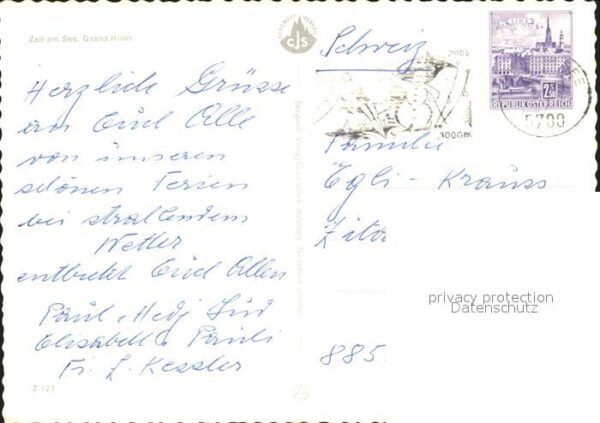 Zell am See, Grand Hotel
Herzlich Grüsse
an Euch Alle
von unseren
schönen Ferien
bei strahlendem
Wetter
entbietet Euch Allen
Paul, Hedj
Elisabeth Pauli
Fr. L. Kessler
Z 123
CJS
Schweiz
Familie
Egli-Krauss
885
2002
1000m
5700
LINZ
2.50
REPUBLIK ÖSTERREICH
privacy protection
Datenschutz